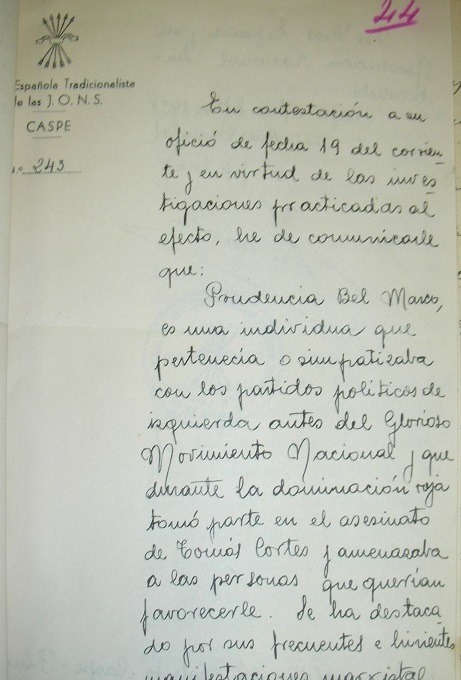 44
Española Tradicionalista
de las J.O.N.S.
CASPE
N.º 243
En contestación a su
ofició de fecha 19 del corrien-
te y en virtud de las inves-
tigaciones practicadas al
efecto, he de comunicarle
que:
Prudencia Bel Marco,
es una individua que
pertenecía o simpatizaba
con los partidos políticos de
izquierda antes del Glorioso
Movimiento Nacional y que
durante la dominación roja
tomó parte en el asesinato
de Tomás Cortes y amenazaba
a las personas que querían
favorecerle. Se ha destaca-
do por sus frecuentes e hirientes
manifestaciones marxistas